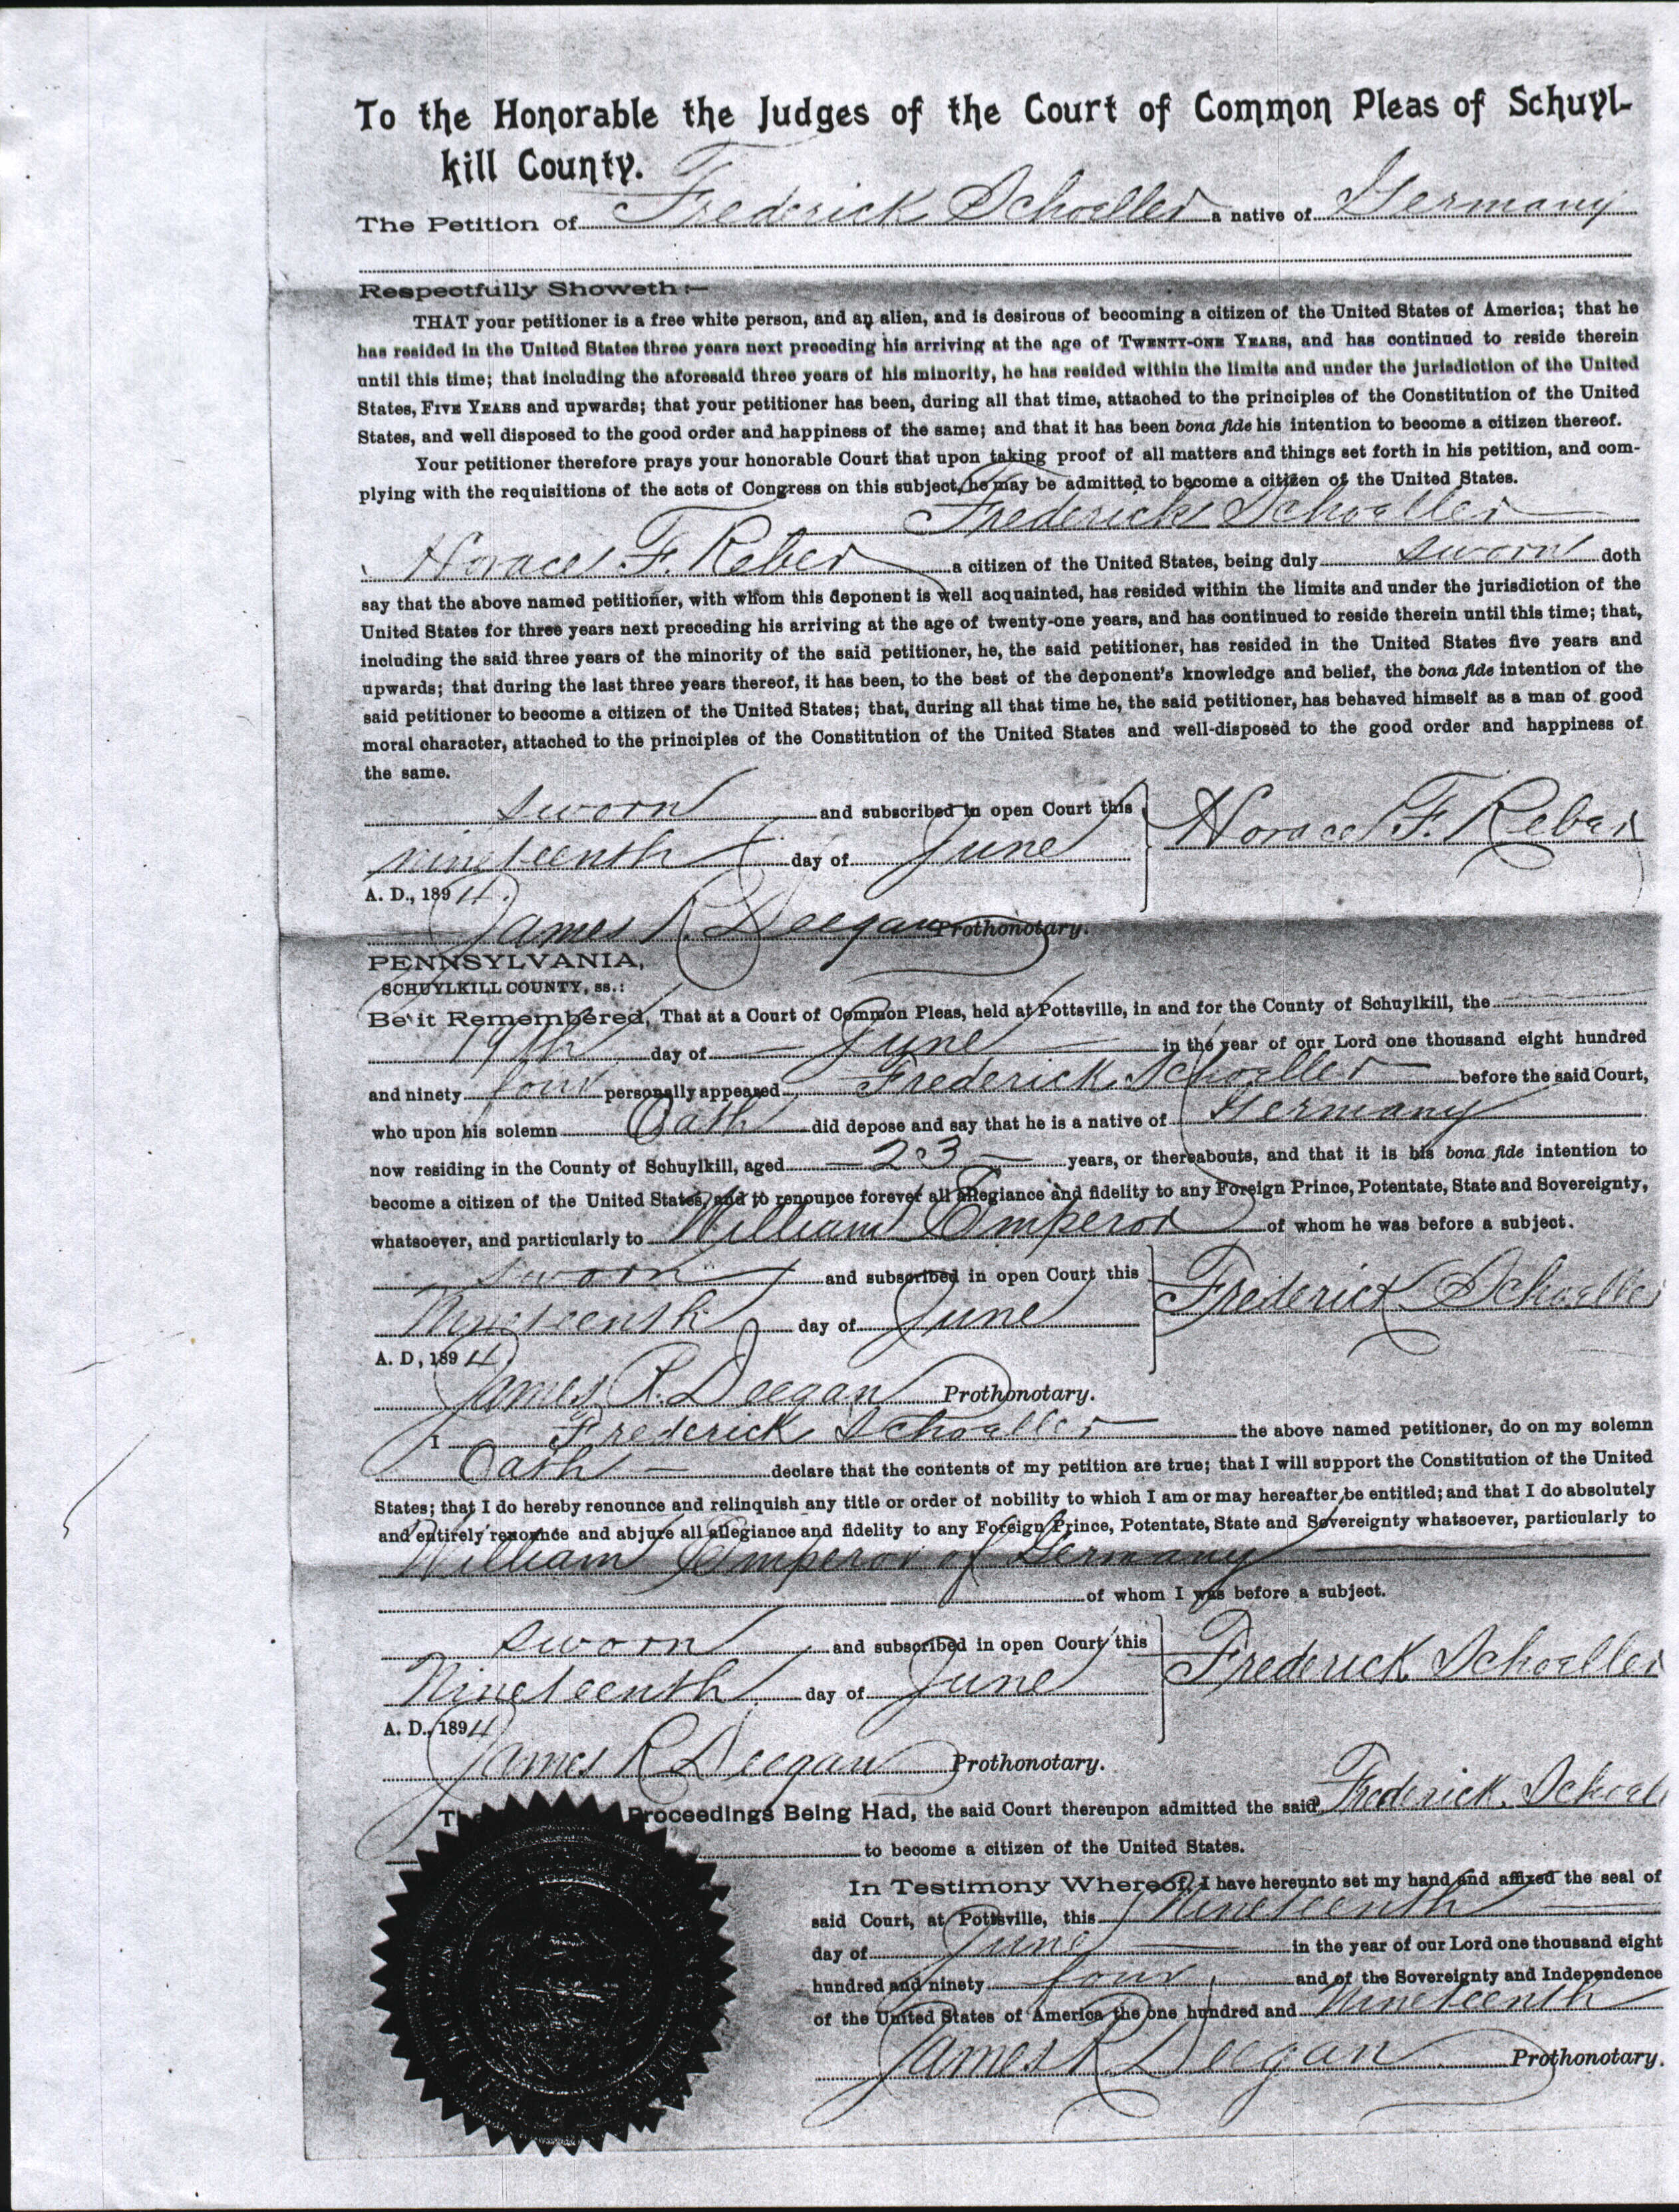 To the Honorable the Judges of the Court of Common Pleas of Schuyl-
kill County.
The Petition of Frederick Schoeller a native of Germany
Respectfully Showeth:—
THAT your petitioner is a free white person, and an alien, and is desirous of becoming a citizen of the United States of America; that he
has resided in the United States three years next preceding his arriving at the age of TWENTY-ONE YEARS, and has continued to reside therein
until this time; that including the aforesaid three years of his minority, he has resided within the limits and under the jurisdiction of the United
States, FIVE YEARS and upwards; that your petitioner has been, during all that time, attached to the principles of the Constitution of the United
States, and well disposed to the good order and happiness of the same; and that it has been bona fide his intention to become a citizen thereof.
Your petitioner therefore prays your honorable Court that upon taking proof of all matters and things set forth in his petition, and com-
plying with the requisitions of the acts of Congress on this subject, he may be admitted to become a citizen of the United States.
Frederick Schoeller
Horace F. Reber a citizen of the United States, being duly sworn doth
say that the above named petitioner, with whom this deponent is well acquainted, has resided within the limits and under the jurisdiction of the
United States for three years next preceding his arriving at the age of twenty-one years, and has continued to reside therein until this time; that,
including the said three years of the minority of the said petitioner, he, the said petitioner, has resided in the United States five years and
upwards; that during the last three years thereof, it has been, to the best of the deponent's knowledge and belief, the bona fide intention of the
said petitioner to become a citizen of the United States; that, during all that time he, the said petitioner, has behaved himself as a man of good
moral character, attached to the principles of the Constitution of the United States and well-disposed to the good order and happiness of
the same.
sworn and subscribed in open Court this
nineteenth day of June
Horace F. Reber
A. D., 1894.
James R. Deegan Prothonotary.
PENNSYLVANIA,
SCHUYLKILL COUNTY, ss.:
Be it Remembered, That at a Court of Common Pleas, held at Pottsville, in and for the County of Schuylkill, the
19th day of June in the year of our Lord one thousand eight hundred
and ninety four personally appeared Frederick Schoeller before the said Court,
who upon his solemn Oath did depose and say that he is a native of Germany
now residing in the County of Schuylkill, aged 23 years, or thereabouts, and that it is his bona fide intention to
become a citizen of the United States, and to renounce forever all allegiance and fidelity to any Foreign Prince, Potentate, State and Sovereignty,
whatsoever, and particularly to William Emperor of whom he was before a subject.
sworn and subscribed in open Court this
Nineteenth day of June
Frederick Schoeller
A. D, 1894
James R. Deegan Prothonotary.
I Frederick Schoeller the above named petitioner, do on my solemn
Oath declare that the contents of my petition are true; that I will support the Constitution of the United
States; that I do hereby renounce and relinquish any title or order of nobility to which I am or may hereafter be entitled; and that I do absolutely
and entirely renounce and abjure all allegiance and fidelity to any Foreign Prince, Potentate, State and Sovereignty whatsoever, particularly to
William Emperor of Germany
of whom I was before a subject.
sworn and subscribed in open Court this
Nineteenth day of June
Frederick Schoeller
A. D., 1894
James R Deegan Prothonotary.
Proceedings Being Had, the said Court thereupon admitted the said Frederick Schoell
to become a citizen of the United States.
In Testimony Whereof, I have hereunto set my hand and affixed the seal of
said Court, at Pottsville, this Nineteenth
day of June in the year of our Lord one thousand eight
hundred and ninety four and of the Sovereignty and Independence
of the United States of America the one hundred and Nineteenth
James R Deegan Prothonotary.